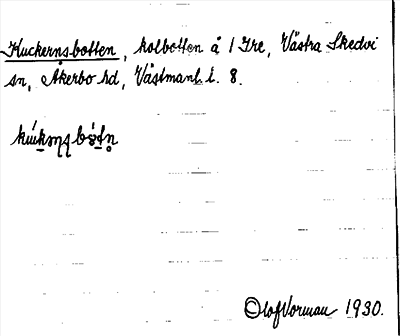 Kuckernsbotten, kolbotten å 1 Gre, Västra Skedvi
sn, Åkerbo hd, Västmanl. l. 8.
Olof Vorman 1930.